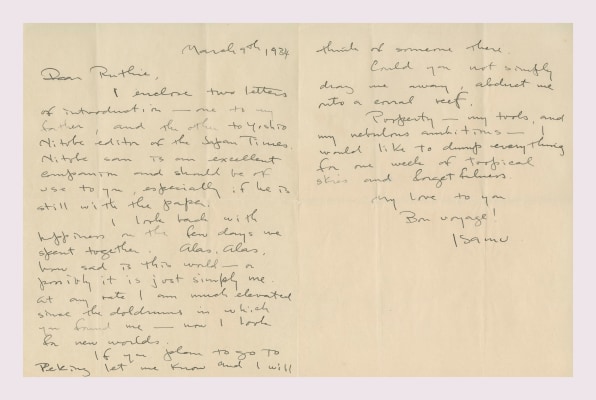 March 9th, 1934
Dear Ruthie,
I enclose two letters
of introduction — one to my
father, and the other to Yoshio
Nitobe editor of the Japan Times.
Nitobe san is an excellent
companion and should be of
use to you, especially if he is
still with the paper.
I look back with
happiness on the few days we
spent together. Alas, Alas,
how sad is this world — or
possibly it is just simply me.
At any rate I am much elevated
since the doldrums in which
you found me — now I look
for new worlds.
If you plan to go to
Peking let me know and I will
think of someone there.
Could you not simply
drag me away, abduct me
onto a coral reef.
Property — my tools, and
my nebulous ambitions — I
would like to dump everything
for one week of tropical
skies and forgetfulness.
My love to you
Bon voyage!
Isamu